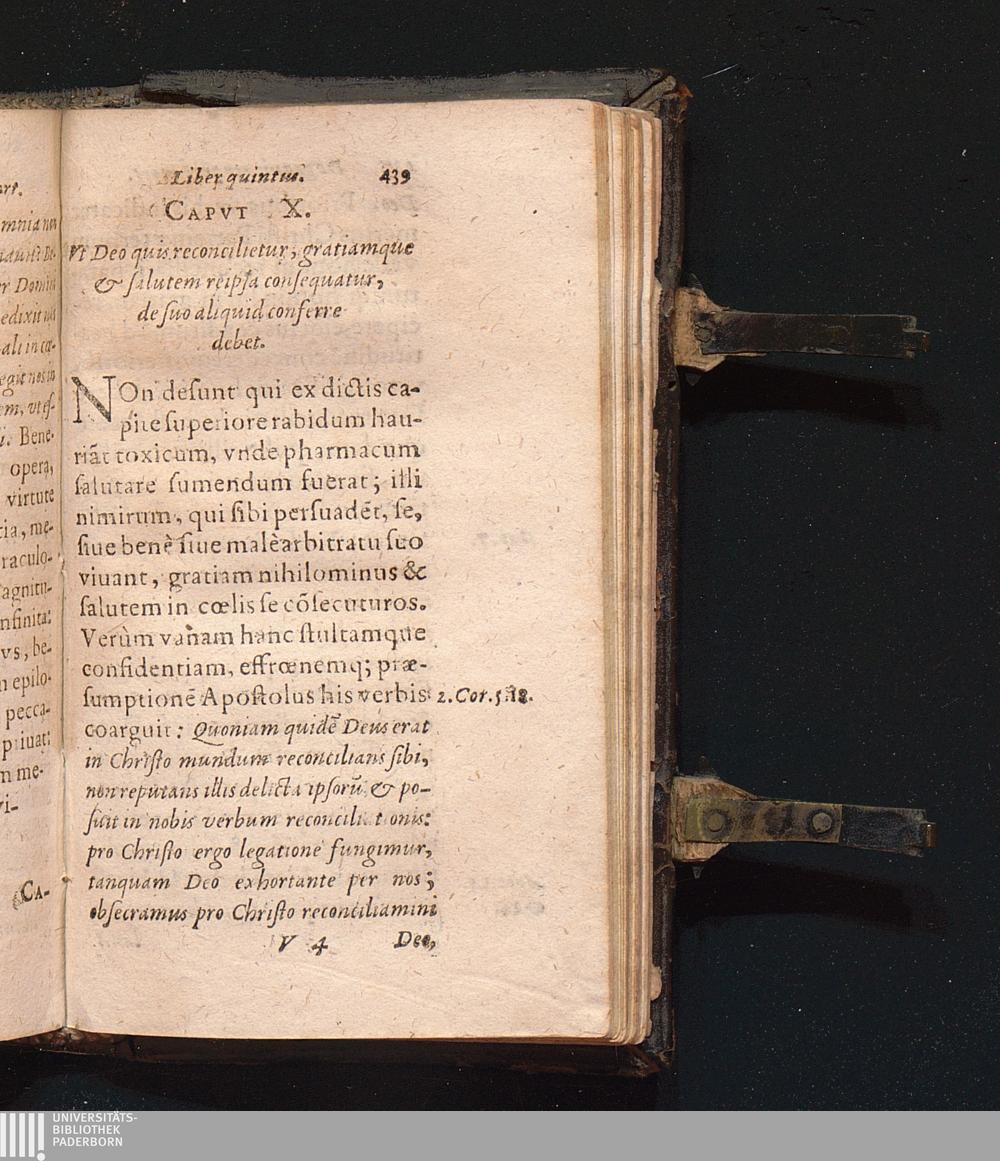 art.
mnia nos
er Domini
edixit nos
ali in cœ-
egit nos in
em, vt es-
i. Bene-
opera,
virtute
tia, me-
raculo-
agnitu-
nfinita:
vs, be-
n epilo-
pecca-
priuat:
m me-
vi-
CA-
Liber quintus. 439
CAPVT X.
Vt Deo quis reconcilietur, gratiamque
& ſalutem reipſa conſequatur,
de ſuo aliquid conferre
debet.
NOn deſunt qui ex dictis ca-
pite ſuperiore rabidum hau-
riāt toxicum, vnde pharmacum
ſalutare ſumendum fuerat; illi
nimirum, qui ſibi perſuadēt, ſe,
ſiue benè ſiue malè arbitratu ſuo
viuant, gratiam nihilominus &
ſalutem in cœlis ſe cōſecuturos.
Verùm vanam hanc ſtultamque
confidentiam, effrœnemq; præ-
ſumptionē Apoſtolus his verbis 2. Cor. 5. 18.
coarguit: Quoniam quidē Deus erat
in Chriſto mundum reconcilians ſibi,
non reputans illis delicta ipſorū & po-
ſuit in nobis verbum reconciliationis:
pro Chriſto ergo legatione fungimur,
tanquam Deo exhortante per nos;
obſecramus pro Chriſto reconciliamini
V 4 Deo,
UNIVERSITÄTS-
BIBLIOTHEK
PADERBORN